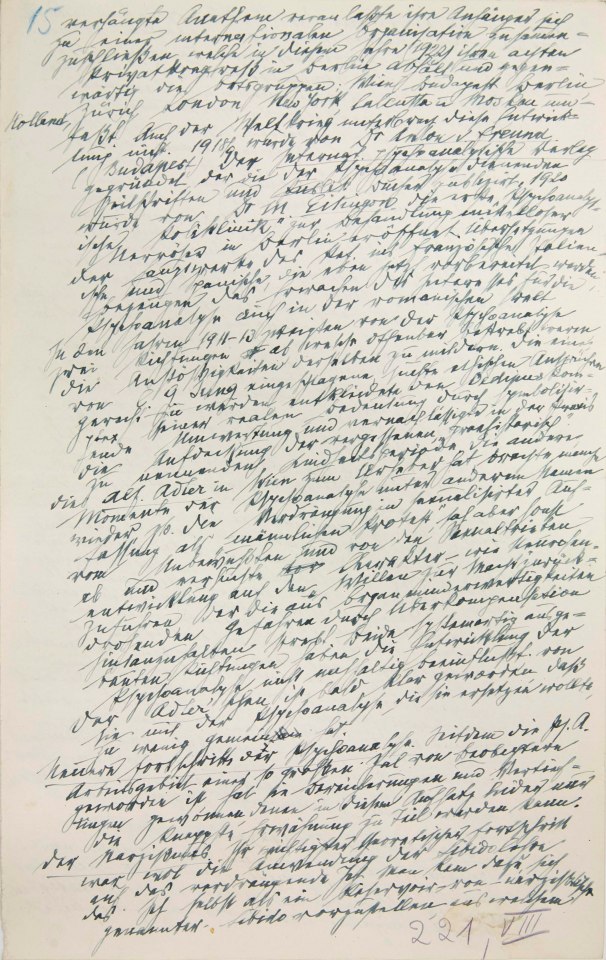 15
verhängte Anathem veranlaßte ihre Anhänger sich
zu einer internationalen Organisation zusammen-
zuschließen welche in diesem Jahre 1922 ihren achten
Privatkongreß in Berlin abhält und gegen-
wärtig die Ortsgruppen: Wien Budapest Berlin
Holland, Zürich London New York Calcutta u Moskau um-
faßt Auch der Weltkrieg unterbrach diese Entwick-
lung nicht. 1918/9 wurde von Dr Anton v Freund
Budapest der Internat. Psychoanalytische Verlag
gegründet der die der Psychoanalyse dienenden
Zeitschriften und Bücher publizirt, 1920
wurde von Dr M. Eitingon die erste Psychoanalyt-
ische Poliklinik zur Behandlung mittelloser
Nervöser in Berlin eröffnet. Übersetzungen
der Hauptwerke des Ref. ins Französische Italien-
ische und Spanische, die eben jetzt vorbereitet werden
bezeugen das Erwachen des Interesses für die
Psychoanalyse auch in der romanischen Welt
In den Jahren 1911-13 zweigten von der Psychoanalyse
zwei Richtungen ab welche offenbar bestrebt waren
die Anstößigkeiten derselben zu mildern. Die eine
von C G Jung eingeschlagene suchte ethischen Ansprüchen
gerecht zu werden entkleidete den Oedipus kom-
plex seiner realen Bedeutung durch symbolisir-
ende Umwertung und vernachlässigte in der Praxis
die Aufdeckung der vergessenen „prähistorisch"
zu nennenden Kindheitsperiode, die andere
die Alf. Adler in Wien zum Urheber hat brachte manche
Momente der Psychoanalyse unter anderem Namen
wieder so die Verdrängung in sexualisirter Auf-
fassung als „männlichen Protest" sah aber sonst
vom Unbewußten und von den Sexualtrieben
ab und versuchte Charakter- wie Neurosen-
entwicklung auf den Willen zur Macht zurück-
zuführen der die aus Organminderwertigkeiten
drohenden Gefahren durch Überkompensation
hintanzuhalten strebt. Beide systemartig ausge-
bauten Richtungen haben die Entwicklung der
Psychoanalyse nicht nachhaltig beeinflußt von
der Adler'schen ist bald klar geworden daß
sie mit der Psychoanalyse die sie ersetzen wollte
zu wenig gemeinsam hat
Neuere Fortschritte der Psychoanalyse. Seitdem die Ps. A.
Arbeitsgebiet einer so großen Zal von Beobachtern
geworden ist hat sie Bereicherungen und Vertief-
ungen gewonnen denen in diesem Aufsatze leider nur
die knappste Erwähnung zu Teil werden kann.
Der Narzißmus Ihr wichtigster theoretischer Fortschritt
war wol die Anwendung der Libidolehre
auf das verdrängende Ich Man kam dazu sich
das Ich selbst als ein Reservoir von - narzißtisch
genannter - Libido vorzustellen aus welchem
221, VIII